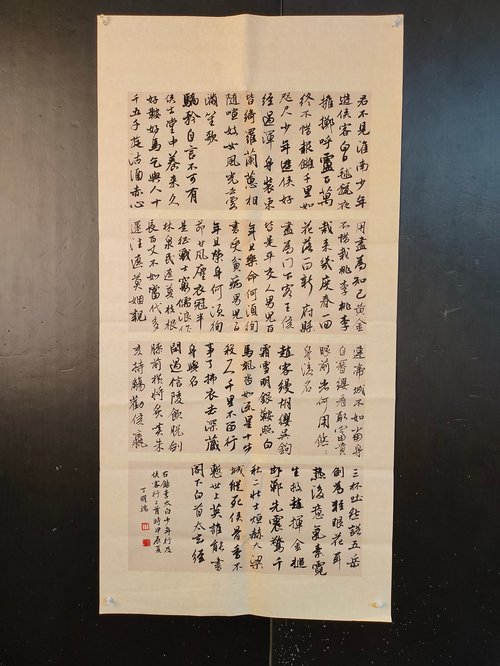 君不見淮南少年
遊俠客白日毬獵夜
擁擲呼盧百萬
終不惜報讎千里如
咫尺少年遊俠好
經過渾身裝束
皆綺羅蘭蕙相
隨喧妓女風光去處
滿笙歌
驕矜自言不可有
俠士堂中養來久
好鞍好馬乞與人十
千五千旋沽酒赤心
用盡為知己黃金
不惜栽桃李桃李
栽來幾度春一回
花落一回新府縣
盡為門下客王侯
皆是平交人男兒百
年且樂命何須徇
書受貧病男兒百
年且榮身何須徇
節甘風塵衣冠半
是征戰士窮儒浪作
林泉民遮莫枝根
長百丈不如當代多
還往遮莫姻親
連帝城不如當身
自簪纓看取富貴
眼前者何用悠悠
身後名
趙客縵胡纓吳鉤
霜雪明銀鞍照白
馬颯沓如流星十步
殺一人千里不留行
事了拂衣去深藏
身與名
閑過信陵飲脫劍
膝前橫將炙啖朱
亥持觴勸侯嬴
三杯吐然諾五岳
倒為輕眼花耳
熱後意氣素霓
生救趙揮金槌
邯鄲先震驚千
秋二壯士烜赫大梁
城縱死俠骨香不
慚世上英誰能書
閣下白首太玄經
右錄李太白少年行及
俠客行二首時甲辰夏
丁明瑞